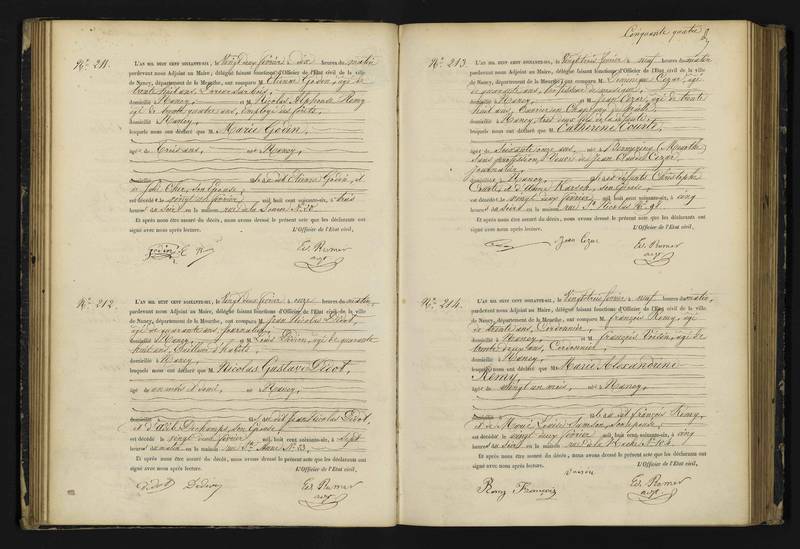 N° 211.
L'AN MIL HUIT CENT SOIXANTE-SIX, le vingt deux février à dix heures du matin
pardevant nous Adjoint au Maire, délégué faisant fonctions d'Officier de l'Etat civil de la ville
de Nancy, département de la Meurthe, ont comparu M. Etienne Godin, âgé de
trente huit ans,
domicilié à Nancy, et M. Nicolas Alphonse Remy
âgé de quatre ans, Employé
domicilié à Nancy,
lesquels nous ont déclaré que M. Marie Godin,
âgée de trois ans, née à Nancy,
de Etienne Godin, et
de son Epouse,
est décédée le vingt un février mil huit cent soixante-six, à trois
heures du soir en la maison rue N° 20
Et après nous être assuré du décès, nous avons dressé le présent acte que les déclarants ont
signé avec nous après lecture. L'Officier de l'Etat civil,
Godin
N° 212.
L'AN MIL HUIT CENT SOIXANTE-SIX, le vingt deux février à onze heures du matin,
pardevant nous Adjoint au Maire, délégué faisant fonctions d'Officier de l'Etat civil de la ville
de Nancy, département de la Meurthe, ont comparu M. Jean Nicolas Didot,
âgé de quarante ans, journalier,
domicilié à Nancy, et M. Louis Didion, âgé de quarante
huit ans, Tailleur d'habits,
domicilié à Nancy,
lesquels nous ont déclaré que M. Nicolas Gustave Didot,
âgé de un mois et demi, né à Nancy,
domicilié à fils de Jean Nicolas Didot,
et d' Deschamps, son Epouse,
est décédé le vingt deux février mil huit cent soixante-six, à sept
heures du matin en la maison rue Ste Anne N° 33.
Et après nous être assuré du décès, nous avons dressé le présent acte que les déclarants ont
signé avec nous après lecture. L'Officier de l'Etat civil,
Didot Didion
Cinquante quatre
N° 213.
L'AN MIL HUIT CENT SOIXANTE-SIX, le vingt trois février à neuf heures du matin
pardevant nous Adjoint au Maire, délégué faisant fonctions d'Officier de l'Etat civil de la ville
de Nancy, département de la Meurthe, ont comparu M. Dominique Cézar, âgé
de quarante ans, Professeur de musique,
domicilié à Nancy, et M. Jean Cézar, âgé de trente
huit ans,
domicilié à Nancy,
lesquels nous ont déclaré que M. Catherine Courte,
âgée de soixante onze ans, née à (Moselle)
sans profession, Veuve de Jean Claude Cézar,
journalier,
domiciliée à Nancy, fille des défunts Christophe
Courte, et d'Anne son Epouse,
est décédée le vingt deux février mil huit cent soixante-six, à cinq
heures du soir en la maison rue St Nicolas N° 91.
Et après nous être assuré du décès, nous avons dressé le présent acte que les déclarants ont
signé avec nous après lecture. L'Officier de l'Etat civil,
Jean Cezar
N° 214.
L'AN MIL HUIT CENT SOIXANTE-SIX, le vingt trois février à neuf heures du matin,
pardevant nous Adjoint au Maire, délégué faisant fonctions d'Officier de l'Etat civil de la ville
de Nancy, département de la Meurthe, ont comparu M. François Remy, âgé
de trente ans, Cordonnier,
domicilié à Nancy, et M. François
trente ans, Cordonnier,
domicilié à Nancy,
lesquels nous ont déclaré que M. Marie Alexandrine
Remy,
âgée de vingt un mois, née à Nancy,
domiciliée à fille de François Remy,
et de Marie Louise son Epouse,
est décédée le vingt deux février mil huit cent soixante-six, à cinq
heures du soir en la maison rue de la N° 104
Et après nous être assuré du décès, nous avons dressé le présent acte que les déclarants ont
signé avec nous après lecture. L'Officier de l'Etat civil,
Remy François